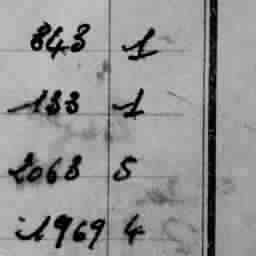 843 1
133 1
2068 5
1969 4